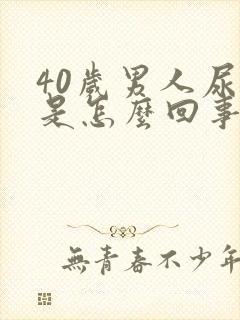 40歲男人尿
是怎麼回事
無青春不少年